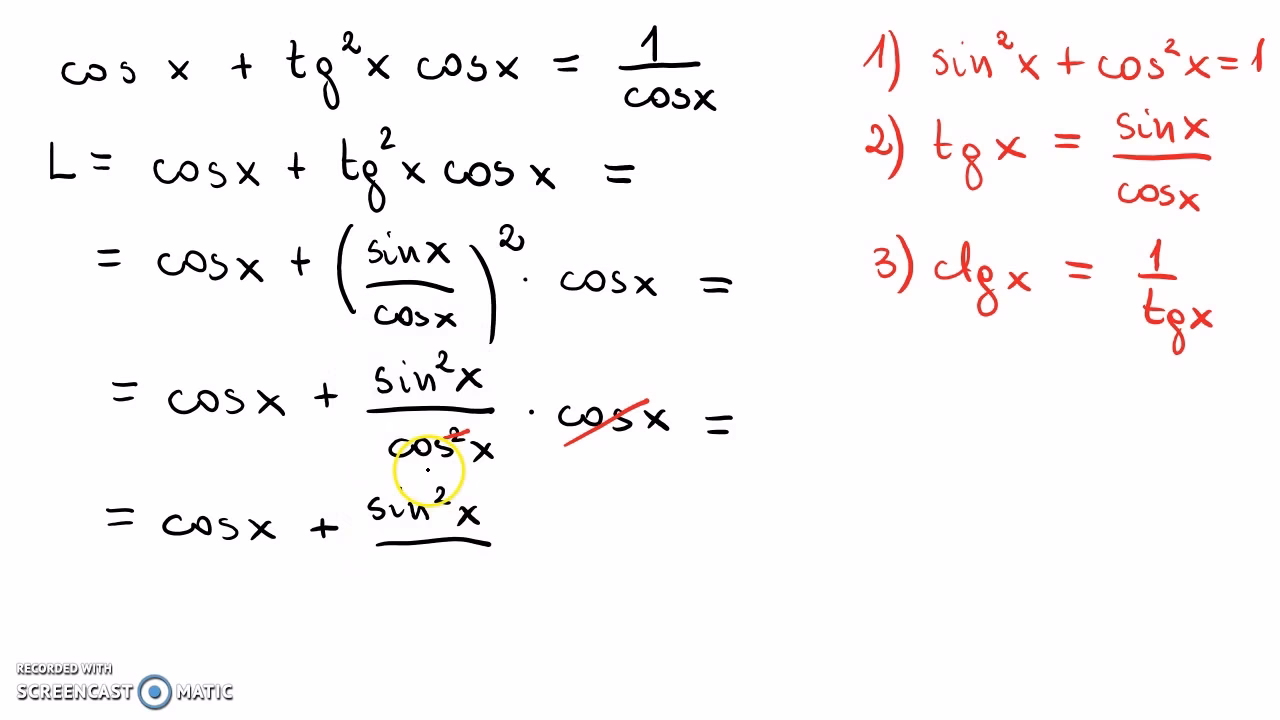 cos x + tg²x cosx = 1/cosx
L = cosx + tg²x cosx =
= cosx + (sinx/cosx)² · cosx =
= cosx + sin²x/cos²x · cosx =
= cosx + sin²x
1) sin²x + cos²x = 1
2) tgx = sinx/cosx
3) ctgx = 1/tgx
RECORDED WITH
SCREENCAST MATIC